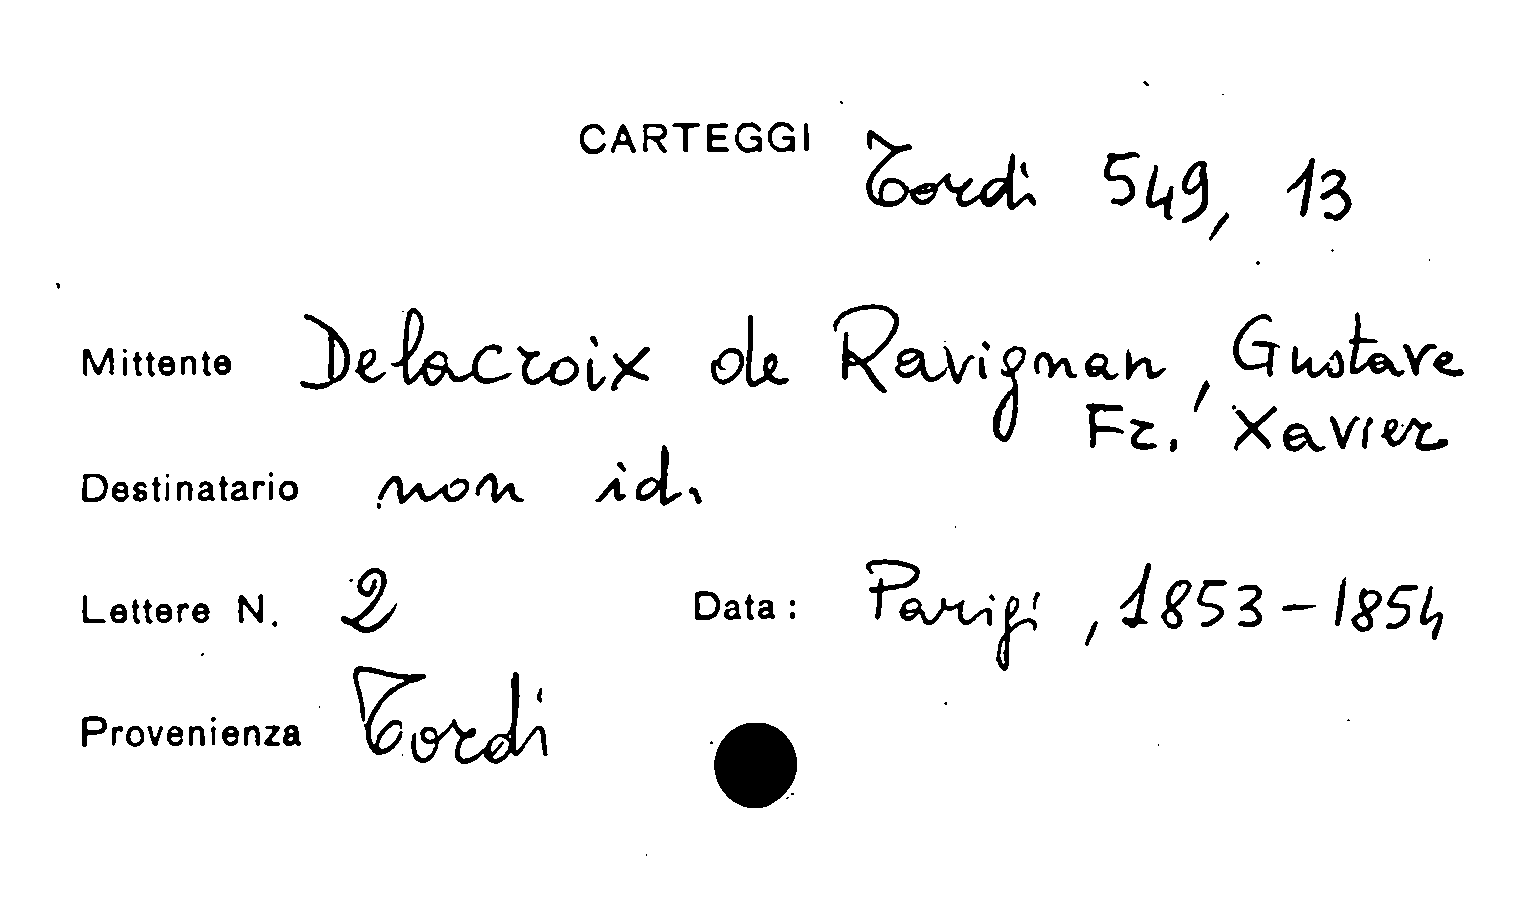 CARTEGGI Tordi 549, 13
Mittente Delacroix de Ravignan, Gustave
Fr. Xavier
Destinatario non id.
Lettere N. 2 Data: Parigi, 1853-1854
Provenienza Tordi